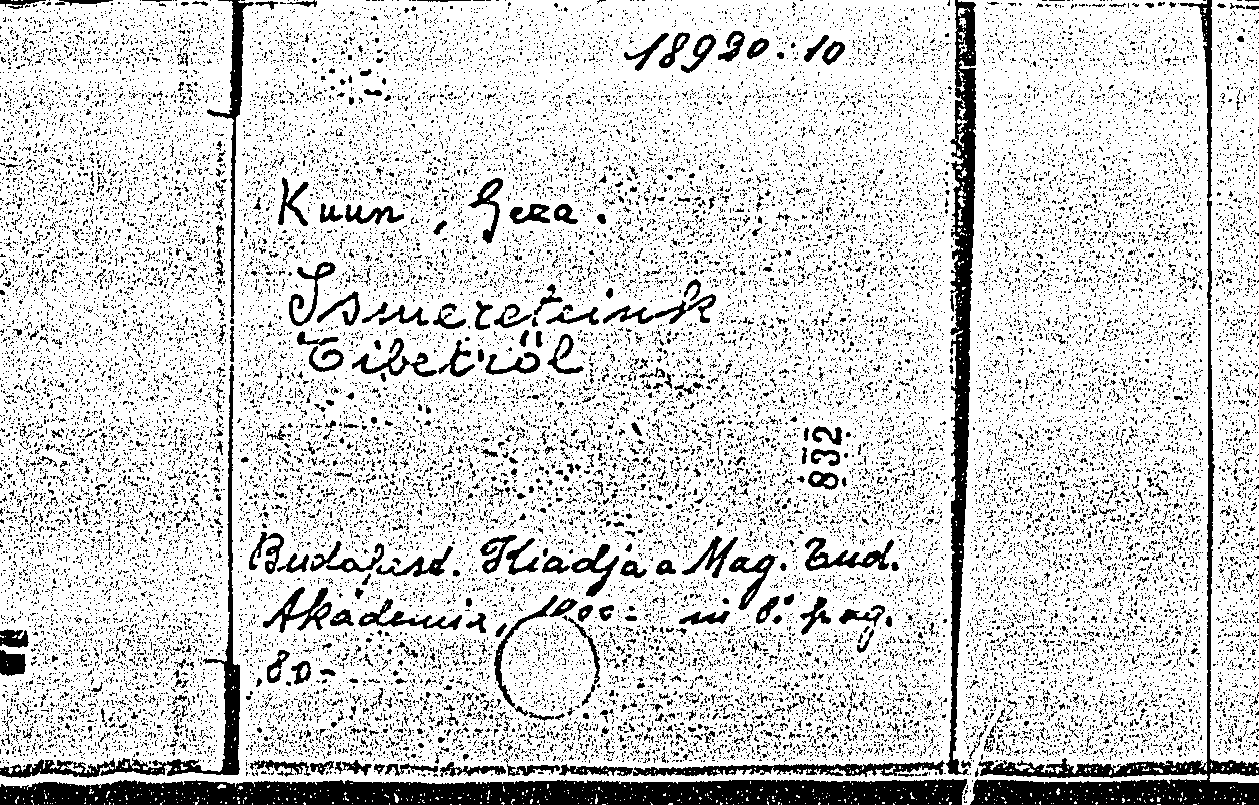 18920.10
Kuun, Geza.
Ismereteink
Tibetről
832
Budapest. Kiadja a Mag. Tud.
Akademia, 1900 - in 8.° pag.
80-